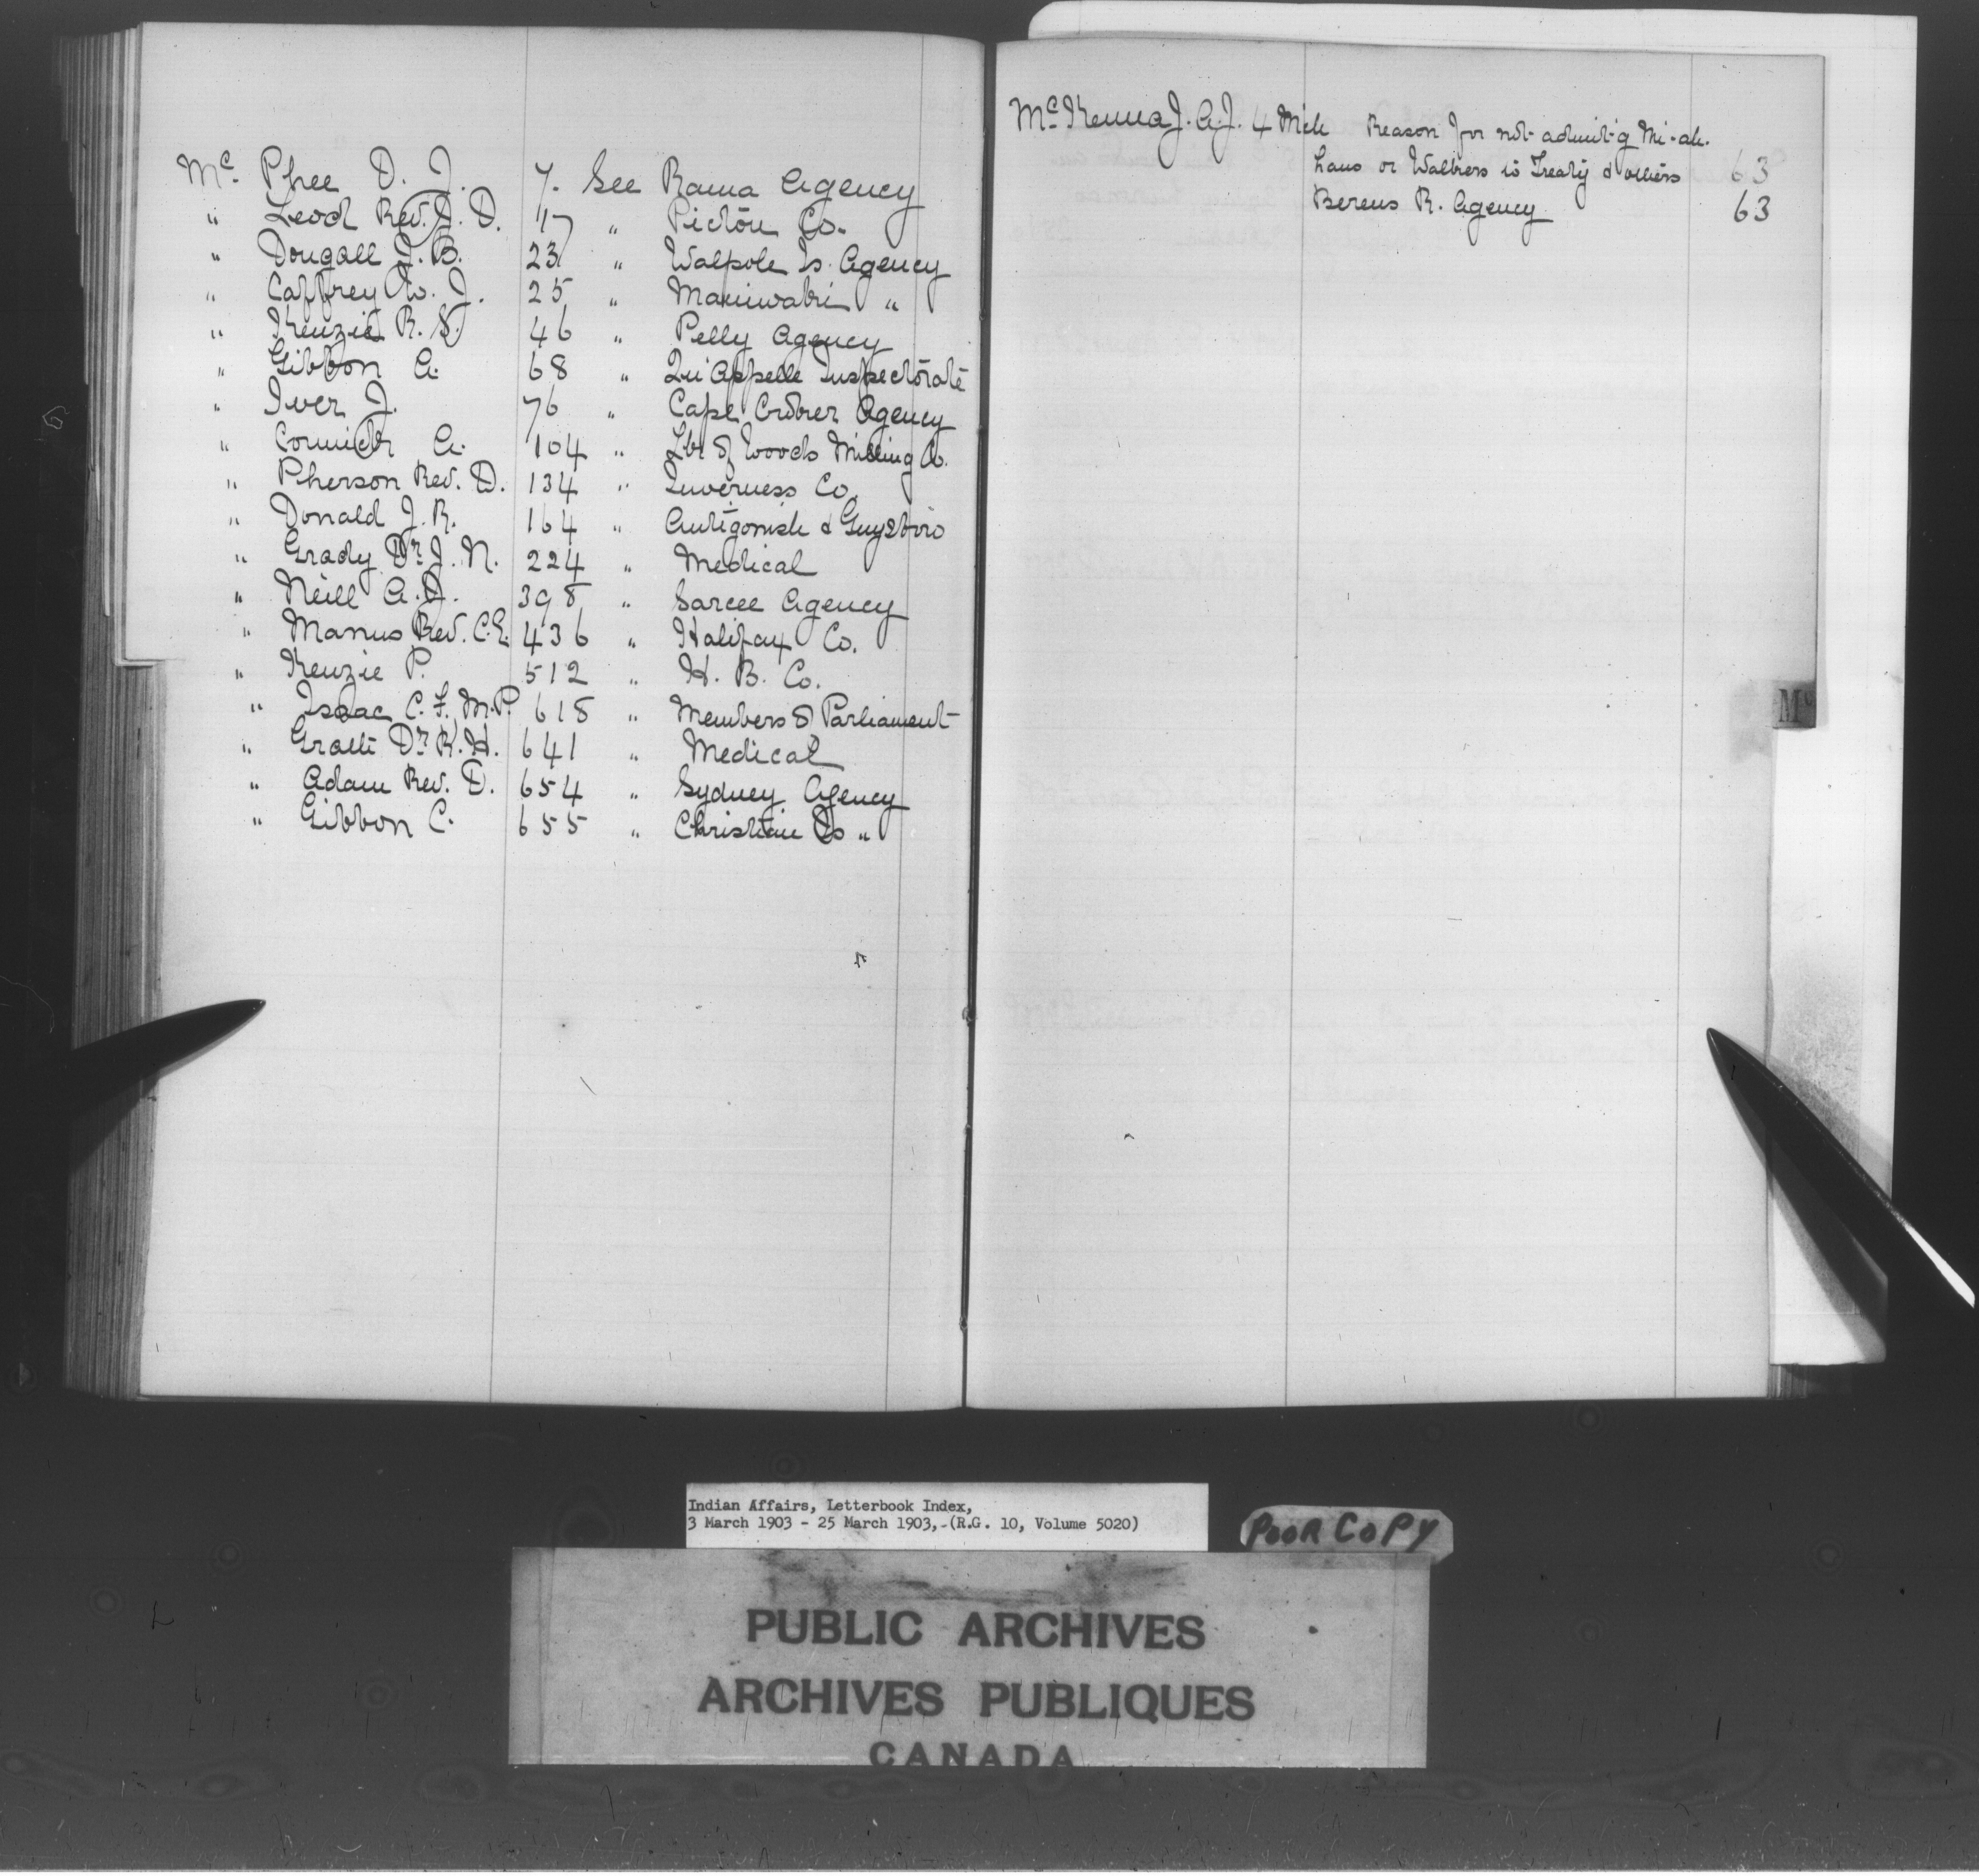 Mc. Phee D. J. 7. See Rama Agency
" Leod Rev. J. D. 17 " Pictou Co.
" Dougall J. B. 23 " Walpole Is. Agency
" Caffrey W. J. 25 " Maniwaki "
" Kenzie R. S. 46 " Pelly Agency
" Gibbon A. 68 " Qu'Appelle Inspectorate
" Iver J. 76 " Cape Croker Agency
" Cormick A. 104 " Lke of Woods Milling Co.
" Pherson Rev. D. 134 " Inverness Co.
" Donald J. R. 164 " Antigonish & Guysboro
" Grady Dr. J. N. 224 " Medical
" Neill A. J. 398 " Sarcee Agency
" Manus Rev. C. E. 436 " Halifax Co.
" Kenzie P. 512 " H. B. Co.
" Isaac C. F. M.P. 618 " Members of Parliament
" Grath Dr. R. H. 641 " Medical
" Adam Rev. D. 654 " Sydney Agency
" Gibbon C. 655 " Christian Is "
Mc Kenna J. A. J. 4 Mch Reason for not admit'g
or to Treaty & others 63
Berens R. Agency 63
Mc
Indian Affairs, Letterbook Index,
3 March 1903 - 25 March 1903, (R.G. 10, Volume 5020)
POOR COPY
PUBLIC ARCHIVES
ARCHIVES PUBLIQUES
CANADA